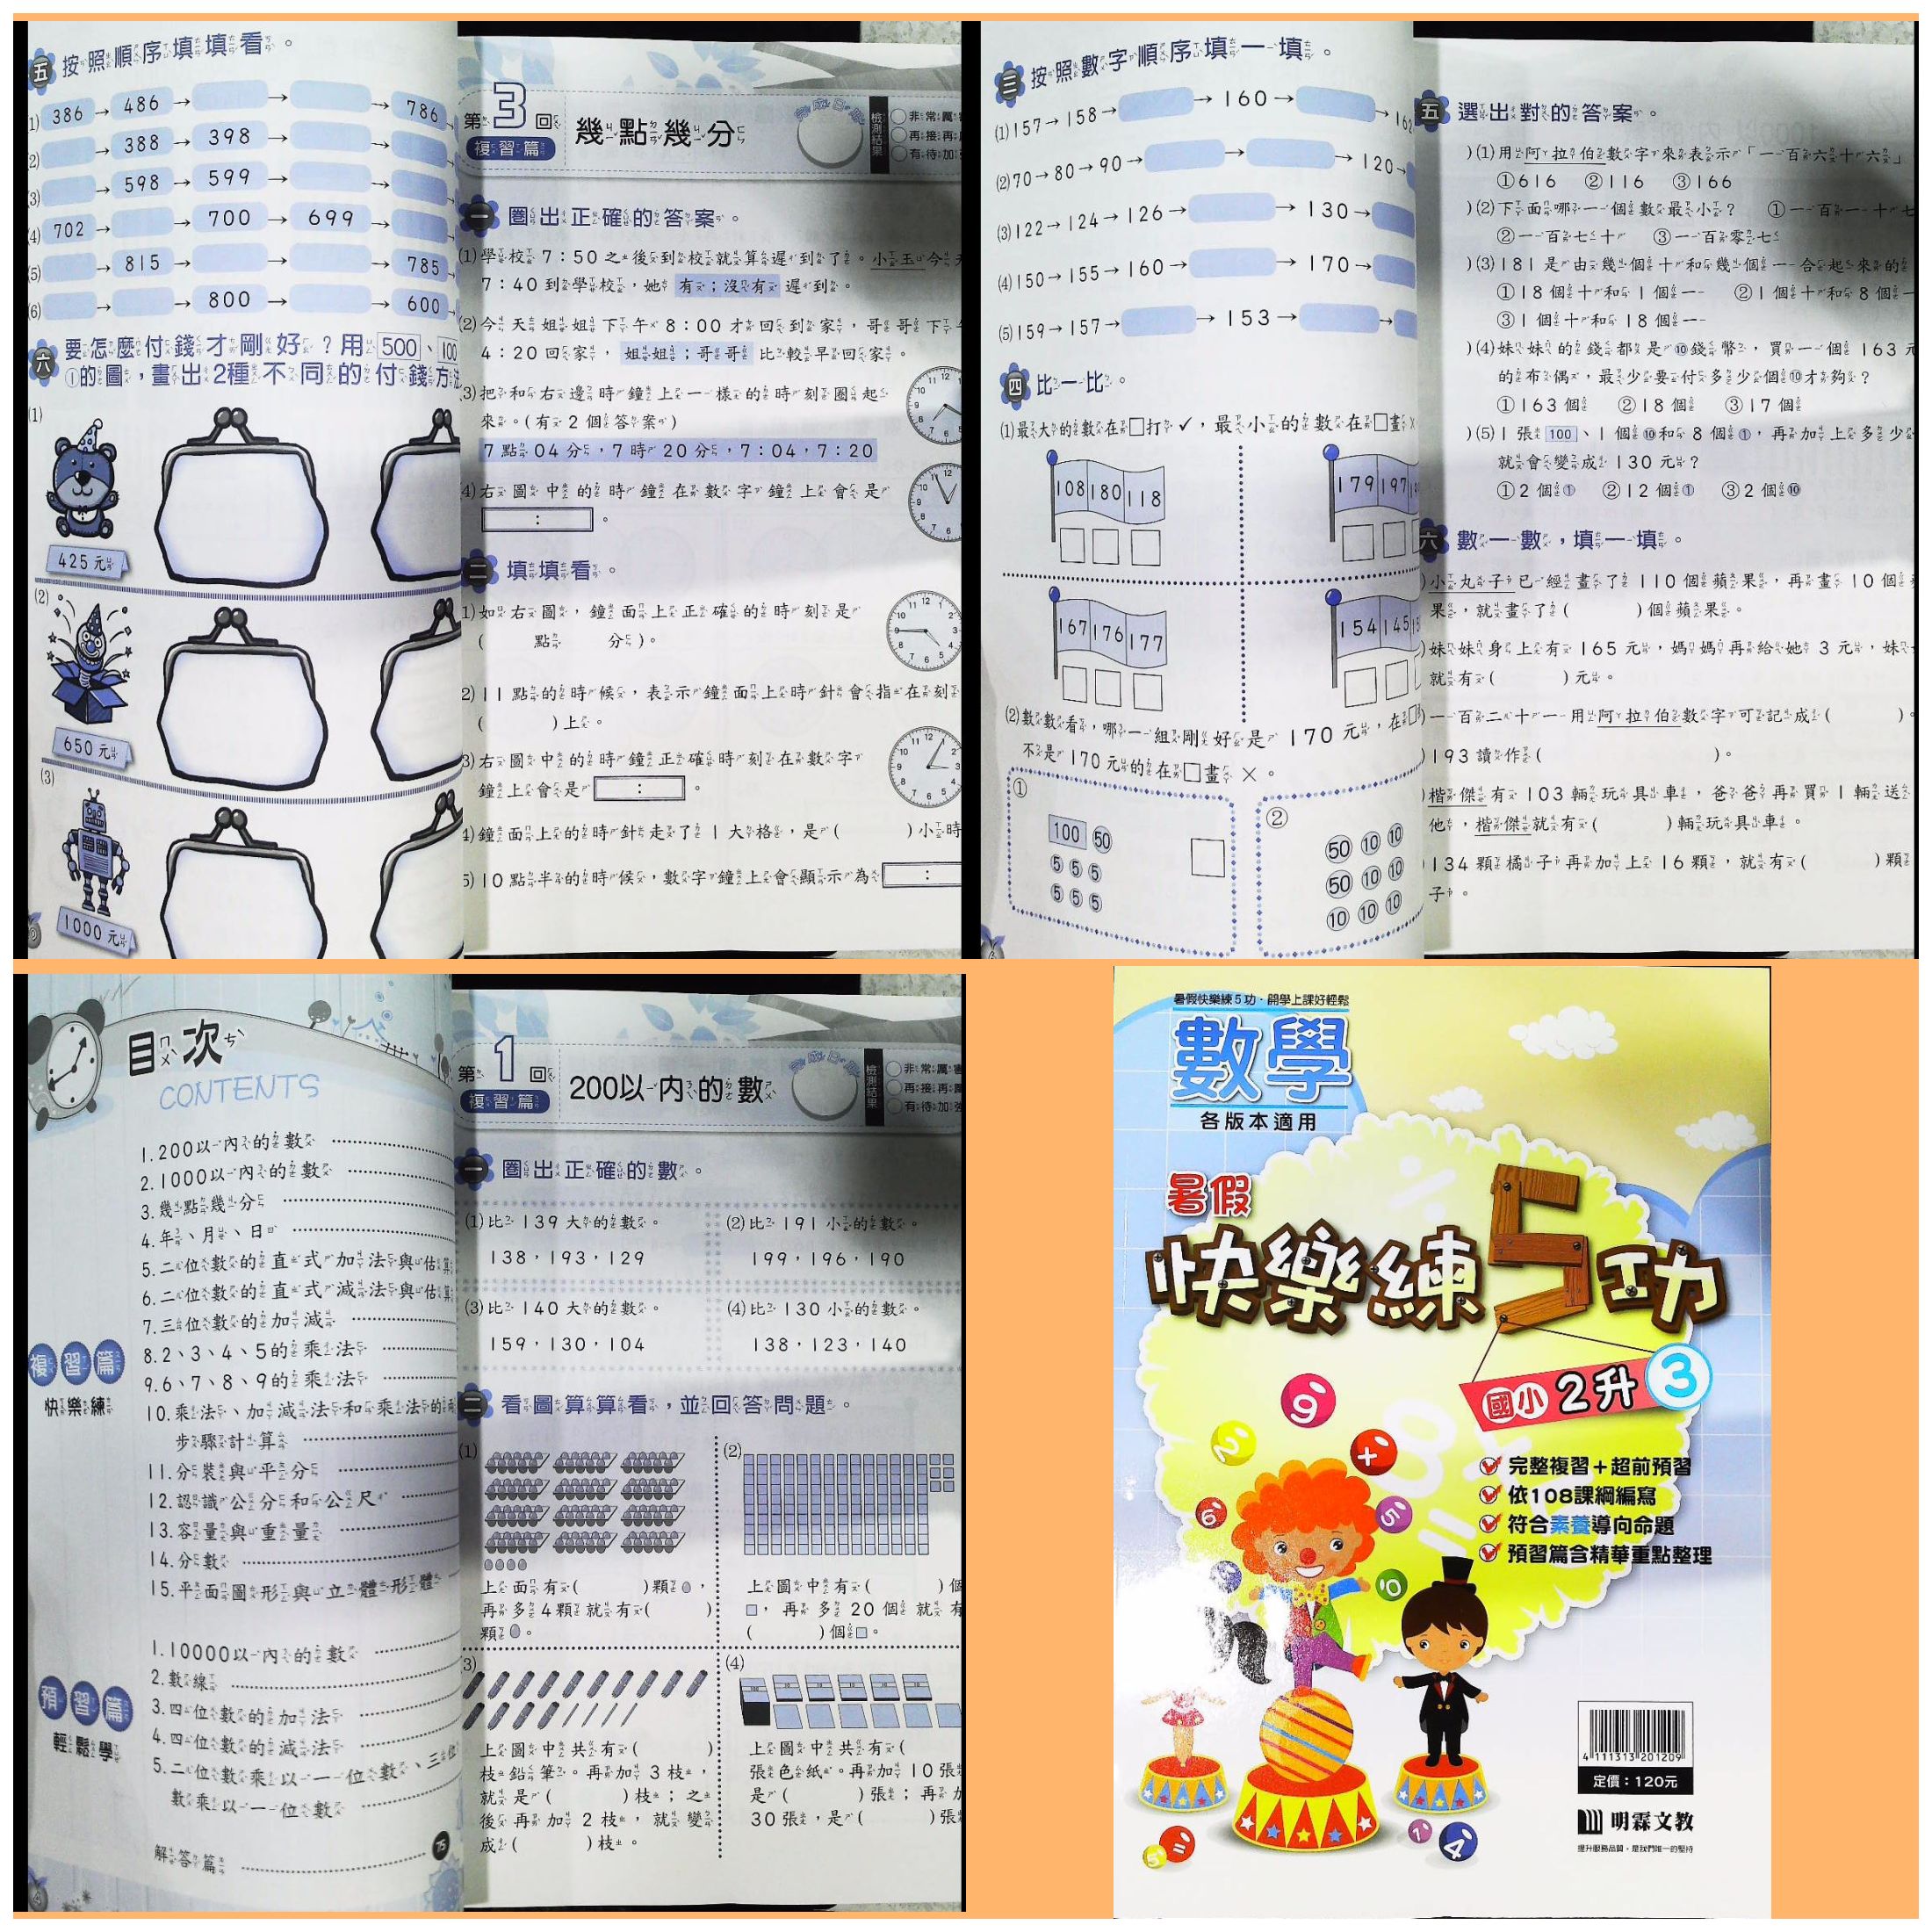 五 按照順序填填看。
(1) 386 → 486 → → → 786
(2) → 388 → 398 → →
(3) → 598 → 599 → →
(4) 702 → → 700 → 699 →
(5) → 815 → → → 785
(6) → → 800 → → 600
六 要怎麼付錢才剛好?用 500、100
①的圖,畫出2種不同的付錢方法
(1)
425元
(2)
650元
(3)
1000元
第3回
複習篇
幾點幾分
檢測結果
非常厲害
再接再
有待加
一 圈出正確的答案。
(1)學校7:50之後到校就算遲到了。小玉今天
7:40到學校,她 有;沒有 遲到。
(2)今天姐姐下午8:00才回到家,哥哥下午
4:20回家, 姐姐;哥哥 比較早回家。
(3)把和右邊時鐘上一樣的時刻圈起
來。(有2個答案)
7點04分,7時20分,7:04,7:20
(4)右圖中的時鐘在數字鐘上會是
: 。
二 填填看。
(1)如右圖,鐘面上正確的時刻是
( 點 分)。
(2)11點的時候,表示鐘面上時針會指在刻
( )上。
(3)右圖中的時鐘正確時刻在數字
鐘上會是 : 。
(4)鐘面上的時針走了1大格,是( )小時
(5)10點半的時候,數字鐘上會顯示為 :
三 按照數字順序填一填。
(1)157→158→ →160→ →162
(2)70→80→90→ → →120→
(3)122→124→126→ →130→
(4)150→155→160→ →170→
(5)159→157→ →153→ →
四 比一比。
(1)最大的數在□打✓,最小的數在□畫×
108 180 118
179 197
167 176 177
154 145
(2)數數看,哪一組剛好是170元,在□
不是170元的在□畫×。
①
100 50
5 5 5
5 5 5
②
50 10 10
50 10 10
10 10 10
五 選出對的答案。
)(1)用阿拉伯數字來表示「一百六十六」
①616 ②116 ③166
)(2)下面哪一個數最小? ①一百一十七
②一百七十 ③一百零七
)(3)181是由幾個十和幾個一合起來的
①18個十和1個一 ②1個十和8個一
③1個十和18個一
)(4)妹妹的錢都是⑩錢幣,買一個163元
的布偶,最少要付多少個⑩才夠?
①163個 ②18個 ③17個
)(5)1張 100、1個⑩和8個①,再加上多少
就會變成130元?
①2個① ②12個① ③2個⑩
六 數一數,填一填。
)小丸子已經畫了110個蘋果,再畫10個蘋
果,就畫了( )個蘋果。
)妹妹身上有165元,媽媽再給她3元,妹
就有( )元。
)一百二十一用阿拉伯數字可記成( )。
)193讀作( )。
)楷傑有103輛玩具車,爸爸再買1輛送
他,楷傑就有( )輛玩具車。
)134顆橘子再加上16顆,就有( )顆
子。
目次
CONTENTS
1.200以內的數
2.1000以內的數
3.幾點幾分
4.年、月、日
5.二位數的直式加法與估算
6.二位數的直式減法與估算
7.三位數的加減
8.2、3、4、5的乘法
9.6、7、8、9的乘法
10.乘法、加減法和乘法的兩
步驟計算
11.分裝與平分
12.認識公分和公尺
13.容量與重量
14.分數
15.平面圖形與立體形體
複習篇
快樂練
1.10000以內的數
2.數線
3.四位數的加法
4.四位數的減法
5.二位數乘以一位數、三位
數乘以一位數
預習篇
輕鬆學
解答篇 75
第1回
複習篇
200以內的數
檢測結果
非常厲害
再接再厲
有待加強
一 圈出正確的數。
(1)比139大的數。
138,193,129
(2)比191小的數。
199,196,190
(3)比140大的數。
159,130,104
(4)比130小的數。
138,123,140
二 看圖算算看,並回答問題。
(1)
上面有( )顆,
再多4顆就有( )
顆。
(2)
上圖中有( )個
□,再多20個就有
( )個□。
(3)
上圖中共有( )
枝鉛筆。再加3枝,
就是( )枝;之
後再加2枝,就變
成( )枝。
(4)
上圖中共有(
張色紙。再加10張
是( )張;再加
30張,是( )張
暑假快樂練5功‧開學上課好輕鬆
數學
各版本適用
暑假
快樂練5功
國小 2升3
完整複習+超前預習
依108課綱編寫
符合素養導向命題
預習篇含精華重點整理
4 111313 201209
定價:120元
明霖文教
提升服務品質,是我們唯一的堅持